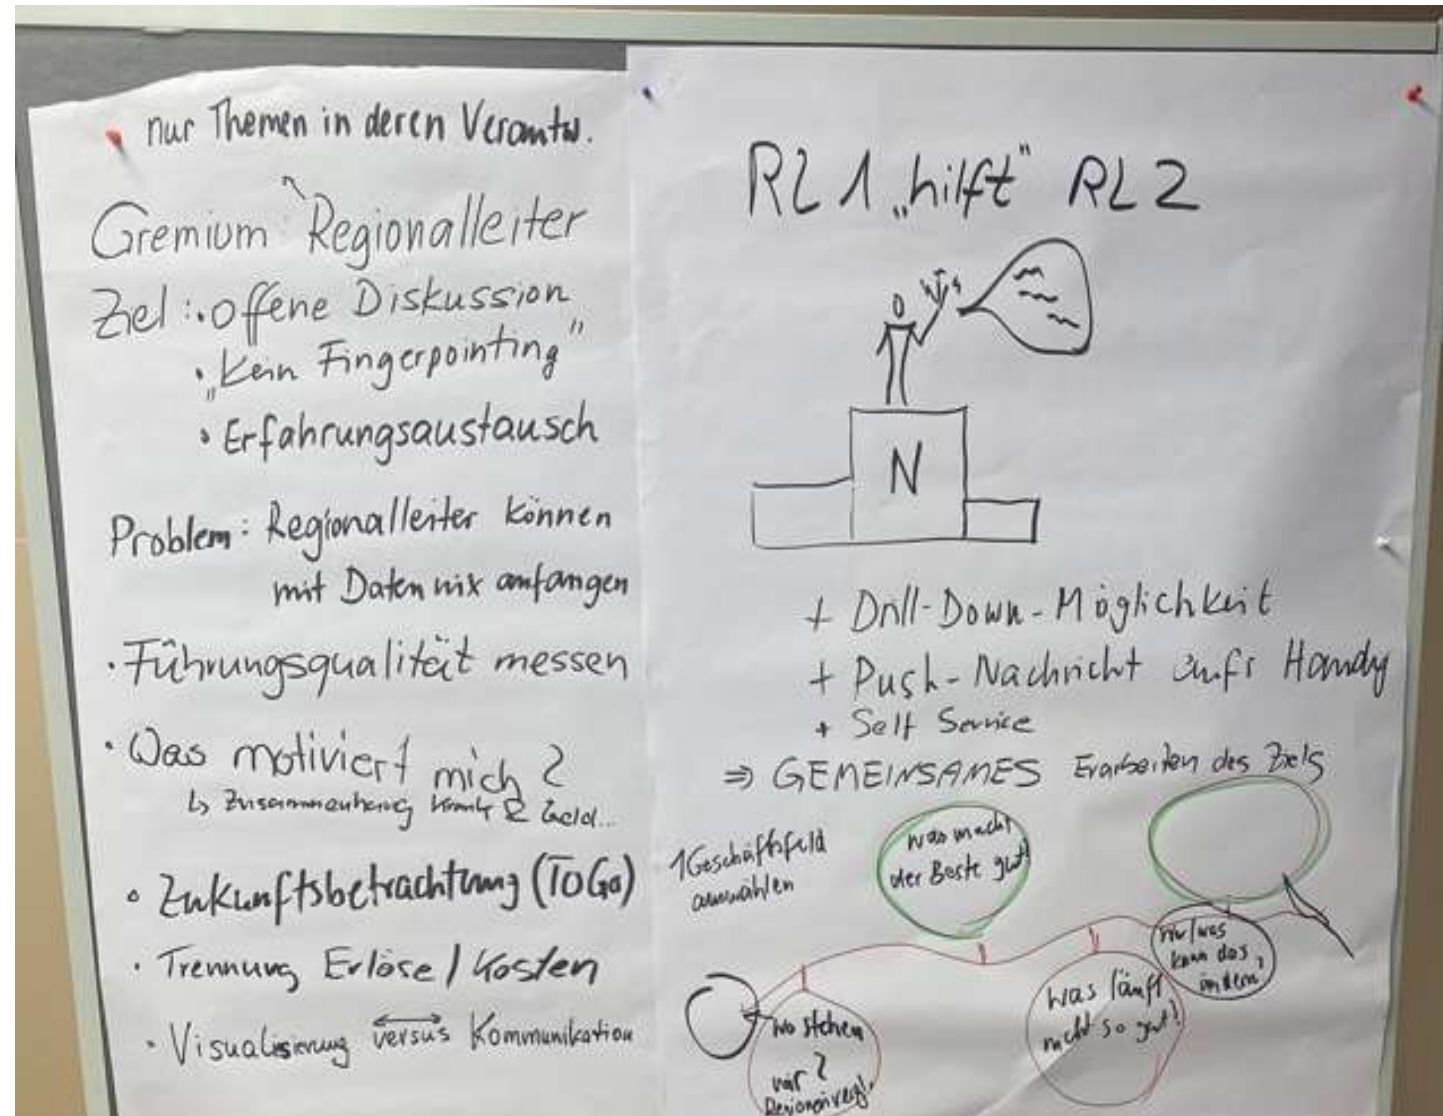 nur Themen in deren Verantw.
Gremium Regionalleiter
Ziel: • offene Diskussion
• „Kein Fingerpointing"
• Erfahrungsaustausch
Problem: Regionalleiter können
mit Daten nix anfangen
• Führungsqualität messen
• Was motiviert mich?
↳ Zusammenhang & Geld...
• Zukunftsbetrachtung (ToGo)
• Trennung Erlöse / Kosten
• Visualisierung versus Kommunikation
RL1 „hilft" RL2
N
+ Drill-Down-Möglichkeit
+ Push-Nachricht aufs Handy
+ Self Service
⇒ GEMEINSAMES Erarbeiten des Ziels
1 Geschäftsfeld
auswählen
was macht
der Beste gut?
wo stehen
wir?
Regionenvergl.
was läuft
nicht so gut?
wer/was
kann das
ändern?